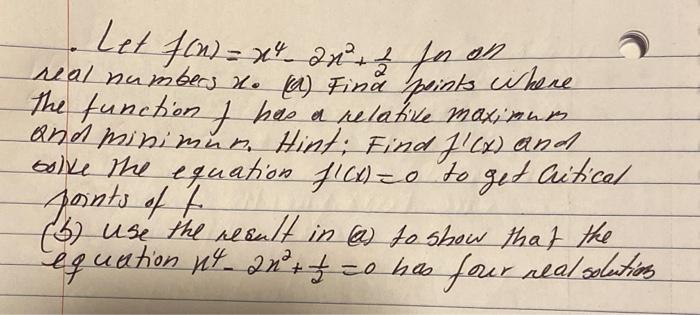 . Let f(x) = x⁴ - 2x² + 1/2 for all
real numbers x. (a) Find points where
the function f has a relative maximum
and minimum. Hint: Find f'(x) and
solve the equation f'(x) = 0 to get Critical
points of f.
(b) use the result in (a) to show that the
equation x⁴ - 2x² + 1/2 = 0 has four real solutions